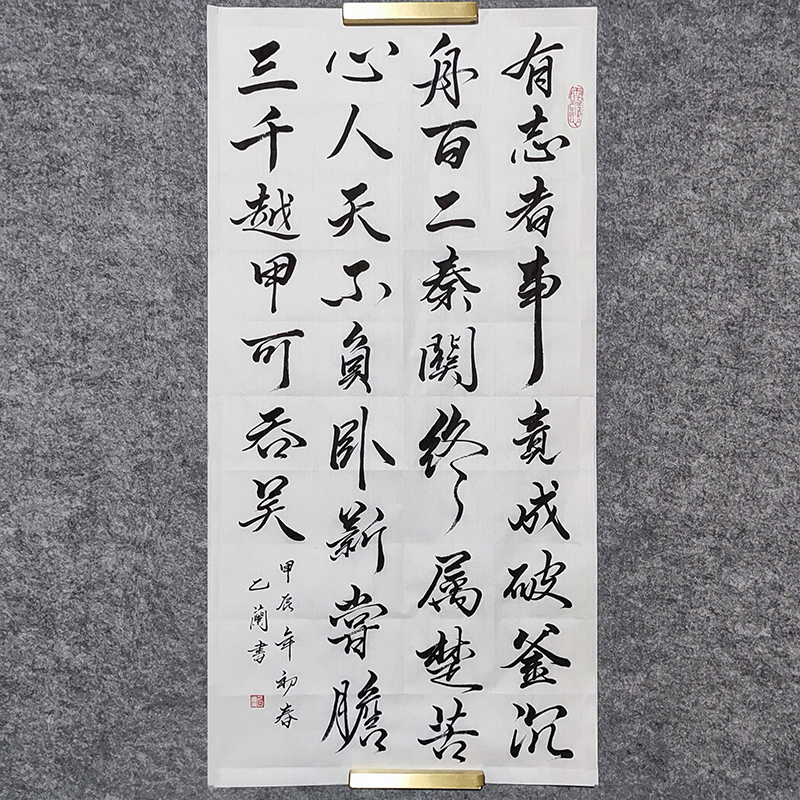 有志者事竟成破釜沉
舟百二秦関终属楚苦
心人天不負卧薪嘗膽
三千越甲可吞吴
甲辰年初春
乙蘭書